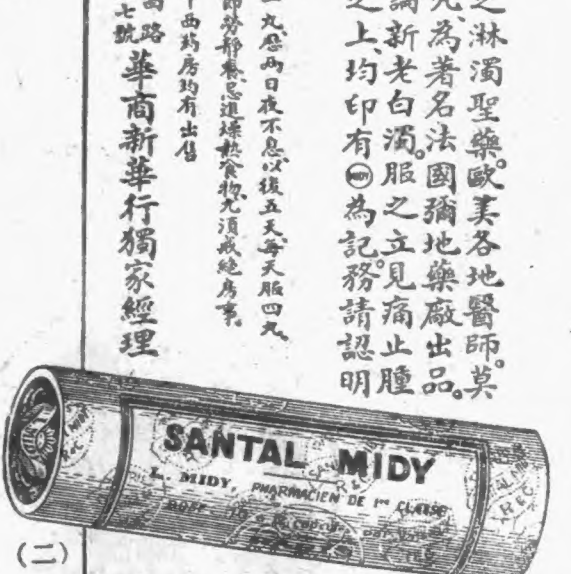 之淋濁聖藥。歐美各地醫師。莫
為著名法國彌地藥廠出品。
論新老白濁。服之立見痛止腫
之上、均印有MIDY為記。務請認明
丸。歷兩日夜不息。以後五天、每天服四丸、
節勞靜養、忌進燥熱食物、尤須戒絕房事。
西藥房均有出售
路
七號 華商新華行獨家經理
SANTAL MIDY
L. MIDY, PHARMACIEN DE 1re CLASSE
(二)